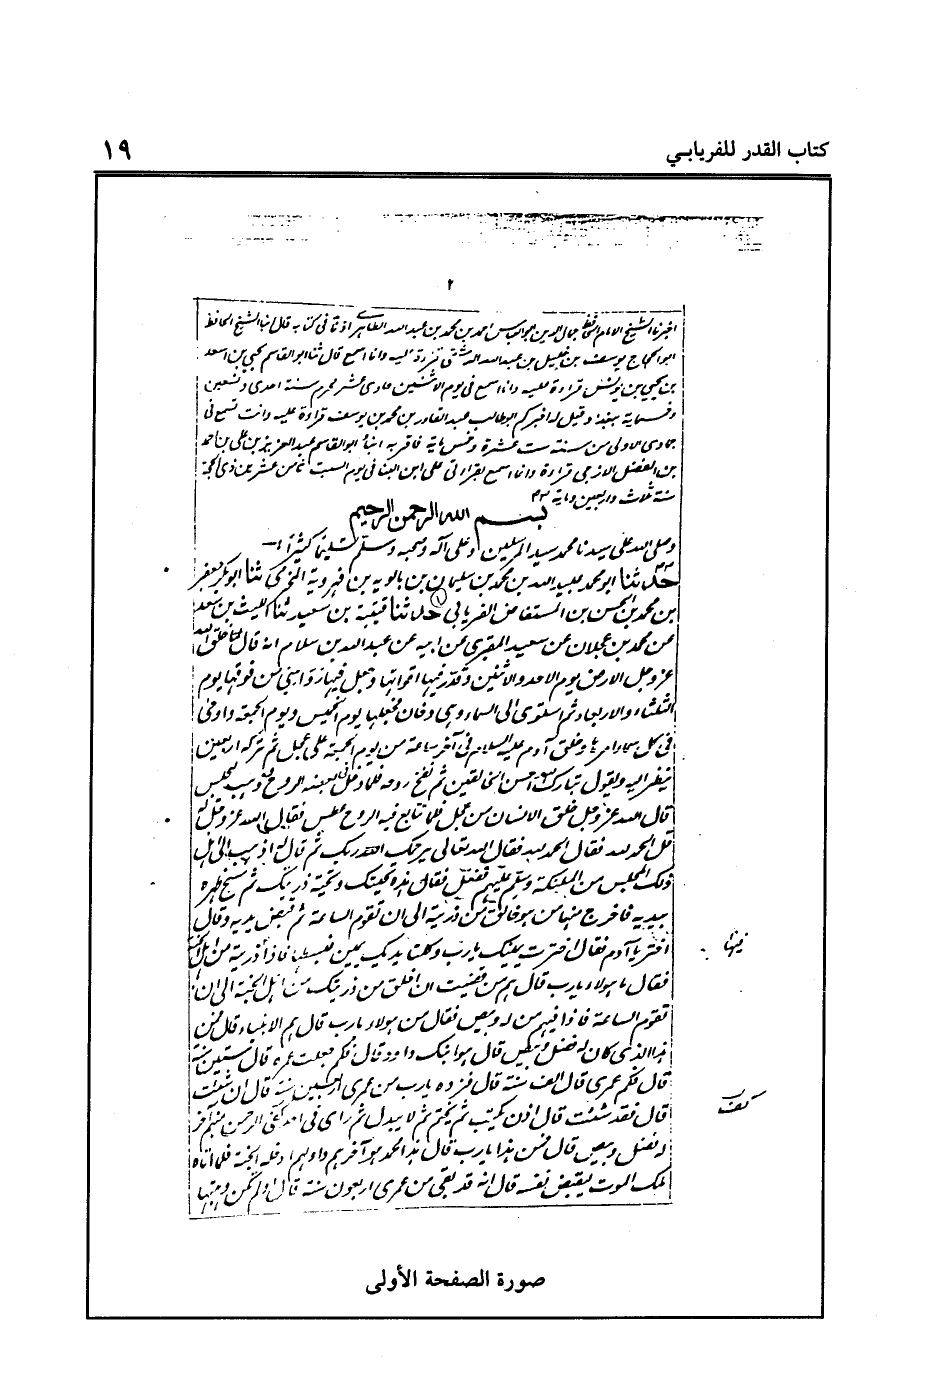 كتاب القدر للفريابي
١٩
٢
اخبرنا الشيخ الامام الحافظ جمال الدين ابو العباس احمد بن محمد بن عبد الله الظاهري اذنا في كتابه قال انبا الشيخ الحافظ
ابو الحجاج يوسف بن خليل بن عبد الله الدمشقي قراءة عليه وانا اسمع قال ثنا ابو القاسم يحيى بن اسعد
بن يحيى بن يونس قراءة عليه وانا اسمع في يوم الاثنين حادي عشر محرم سنة احدى وتسعين
وخمسماية ببغداد وقيل له اخبركم ابو طالب عبد القادر بن محمد بن يوسف قراءة عليه وانت تسمع في
جمادى الاولى من سنة ست عشرة وخمس ماية فاقر به انبا ابو القاسم عبد العزيز بن علي بن احمد
بن الفضل الازجي قراءة وانا اسمع بقراءتي على ابن البنا في يوم السبت ثامن عشرين ذي الحجة
سنة ثلاث واربعين وماية
بسم الله الرحمن الرحيم
وصلى الله على سيدنا محمد سيد المرسلين وعلى آله وصحبه وسلم تسليما كثيرا
حدثنا ابو محمد عبيد الله بن محمد بن سليمان بن بالويه بن فهرويه المخرمي ثنا ابو بكر جعفر
بن محمد بن الحسن بن المستفاض الفريابي حدثنا قتيبة بن سعيد ثنا الليث بن سعد
عن محمد بن عجلان عن سعيد المقبري عن ابيه عن عبد الله بن سلام انه قال خلق الله
عز وجل الارض يوم الاحد والاثنين وقدر فيها اقواتها وجعل فيها رواسي من فوقها يوم
الثلثاء والاربعاء ثم استوى الى السماء وهي دخان فخلقها يوم الخميس ويوم الجمعة واوحى
في كل سماء امرها وخلق آدم عليه السلام في آخر ساعة من يوم الجمعة على عجل ثم تركه اربعين
ينظر اليه ويقول تبارك الله احسن الخالقين ثم نفخ روحه فلما دخل في بعضه الروح ذهب ليجلس
قال الله عز وجل خلق الانسان من عجل فلما تتابع فيه الروح عطس فقال الله عز وجل له
قل الحمد لله فقال الحمد لله فقال الله تعالى يرحمك ربك ثم قال له اذهب الى اهل
ذلك المجلس من الملئكة وسلم عليهم ففعل فقال هذه تحيتك وتحية ذريتك ثم مسح ظهره
بيديه فاخرج منها من هو خالق من ذريته الى ان تقوم الساعة ثم قبض يديه وقال
اختر يا آدم فقال اخترت يمينك يا رب وكلتا يديك يمين فبسطها فاذا ذريته من اهل الجنة
فقال ما هولاء يا رب قال هم من قضيت ان اخلق من ذريتك من اهل الجنة الى ان
تقوم الساعة فاذا فيهم من له وبيص فقال من هولاء يا رب قال هم الانبياء قال فمن
هذا الذي كان له فضل وبيص قال هو ابنك داود قال فكم جعلت عمره قال ستين سنة
قال فكم عمري قال الف سنة قال فزده يا رب من عمري اربعين سنة قال ان شئت
قال فقد شئت قال اذن يكتب ثم يختم ثم لا يبدل ثم راى في آخر كف الرحمن منهم آخر
له فضل وبيص قال فمن هذا يا رب قال هذا محمد هو آخرهم واولهم ادخله الجنة فلما اتاه
ملك الموت ليقبض نفسه قال انه قد بقي من عمري اربعون سنة قال اولم تكن وهبتها
فيها
كف
صورة الصفحة الأولى